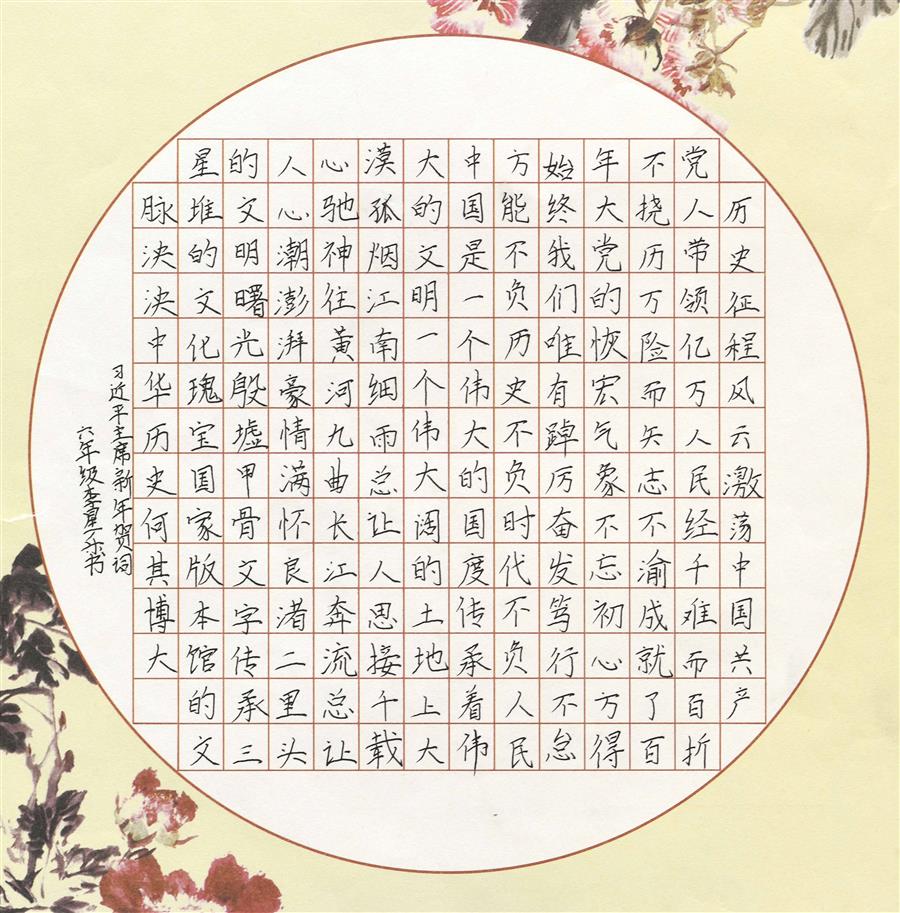 历史征程风云激荡中国共产
党人带领亿万人民经千难而百折
不挠历万险而矢志不渝成就了百
年大党的恢宏气象不忘初心方得
始终我们唯有踔厉奋发笃行不怠
方能不负历史不负时代不负人民
中国是一个伟大的国度传承着伟
大的文明一个伟大阔的土地上大
漠孤烟江南细雨总让人思接千载
心驰神往黄河九曲长江奔流总让
人心潮澎湃豪情满怀良渚二里头
的文明曙光殷墟甲骨文字传承三
星堆的文化瑰宝国家版本馆的文
脉泱泱中华历史何其博大
习近平主席新年贺词
六年级李星乐书